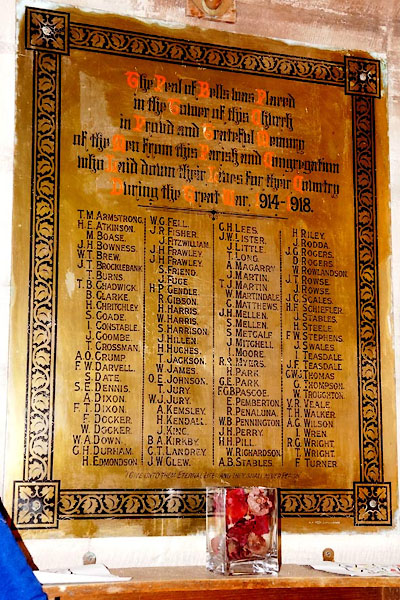 The Peal of Bells was Placed
in the Tower of this Church
in Proud and Grateful Memory
of the Men from this Parish and Congregation
who Laid down their Lives for their Country
During the Great War. 1914-1918.
T.M. ARMSTRONG.
H.E. ATKINSON.
M. BOASE.
J.H. BOWNESS.
W.T. BREW.
J.T. BROCKLEBANK
T. BURNS.
T.B. CHADWICK.
B. CLARKE.
H. CHRITCHLEY.
S. COADE.
I. CONSTABLE.
J. COOMBE.
T. CROSSMAN.
A.O. CRUMP.
F.W. DARVELL.
S. DATE.
S.E. DENNIS.
A. DIXON.
F.T. DIXON.
F. DOCKER.
W. DOCKER.
W.A. DOWN.
G.H. DURHAM.
H. EDMONDSON
W.G. FELL.
J.R. FISHER.
J. FITZWILLIAM
J.H. FRAWLEY.
J.H. FRAWLEY.
S. FRIEND.
J. FUGE.
H.P. GENDLE.
R. GIBSON.
H. HARRIS.
W. HARRIS.
S. HARRISON.
J. HILLEN.
H. HUGHES.
T. JACKSON.
W. JAMES.
O.E. JOHNSON.
T. JURY.
W.J. JURY.
A. KEMSLEY.
H. KENDALL.
J. KING.
B.A. KIRKBY.
C.T. LANDREY.
J.W. GLEW.
G.H. LEES.
J.W. LISTER.
J. LITTLE.
T. LONG.
A. MAGARRY.
J. MARTIN.
T.J. MARTIN.
W. MARTINDALE
G. MATTHEWS.
J.H. MELLEN.
S. MELLEN.
S. METCALF.
J. MITCHELL.
I. MOORE.
R.S. MYERS.
H. PARK.
G.E. PARK.
F.G.B. PASCOE.
E. PEMBERTON.
R. PENALUNA.
W.B. PENNINGTON
J.H. PERRY.
H.H. PILL.
W. RICHARDSON.
A.B. STABLES.
H. RILEY.
J. RODDA.
J.G. ROGERS.
D. ROGERS
W. ROWLANDSON.
J.T. ROWSE.
J. ROWSE.
J.G. SCALES.
H.F. SCHIEFLER
J. STABLES.
H. STEELE.
F.W. STEPHENS.
J. SWALES.
I. TEASDALE
J.F. TEASDALE
C.W.J. THOMAS
G. THOMPSON.
W. TROUGHTON.
V.R. VEALE.
T.H. WALKER.
A.G. WILSON.
I. WREN.
R.G. WRIGHT.
T. WRIGHT.
F. TURNER
I GIVE UNTO THEM ETERNAL LIFE: AND THEY SHALL NEVER PERISH.